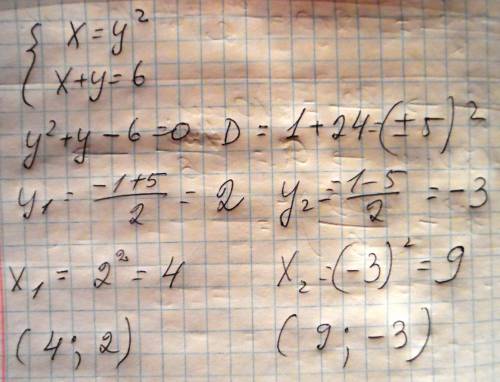 { x = y²
x + y = 6
y² + y - 6 = 0 D = 1 + 24 = (±5)²
y₁ = (-1+5)/2 = 2 y₂ = (-1-5)/2 = -3
x₁ = 2² = 4 x₂ = (-3)² = 9
(4; 2) (9; -3)